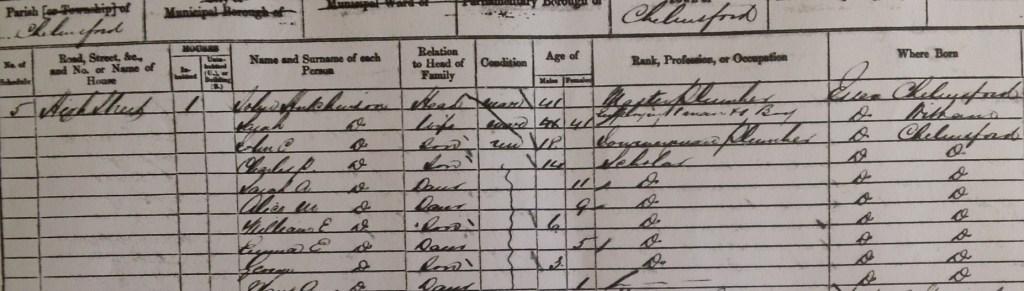 Parish [or Township] of
Municipal Borough of
Municipal Ward of
Parliamentary Borough of
Town of
Chelmsford
Chelmsford
No. of Schedule
Road, Street, &c., and No. or Name of House
HOUSES
Inhabited
Uninhabited (U.), or Building (B.)
Name and Surname of each Person
Relation to Head of Family
Condition
Age of
Males
Females
Rank, Profession, or Occupation
Where Born
5 High Street 1 John Hutchinson Head mar 41 Master Plumber Essex Chelmsford
Do Wife 41 Employing 1 man & Boy Do Witham
John C Do Son un 18 Journeyman Plumber Do Chelmsford
Charles Do Son 14 Scholar Do Do
Sarah A. Do Daur 11 Do Do Do
Alice M Do Daur 9 Do Do Do
William E Do Son 6 Do Do Do
Emma E Do Daur 5 Do Do Do
George Do Son 3 Do Do Do
A. Do Daur 1 Do Do